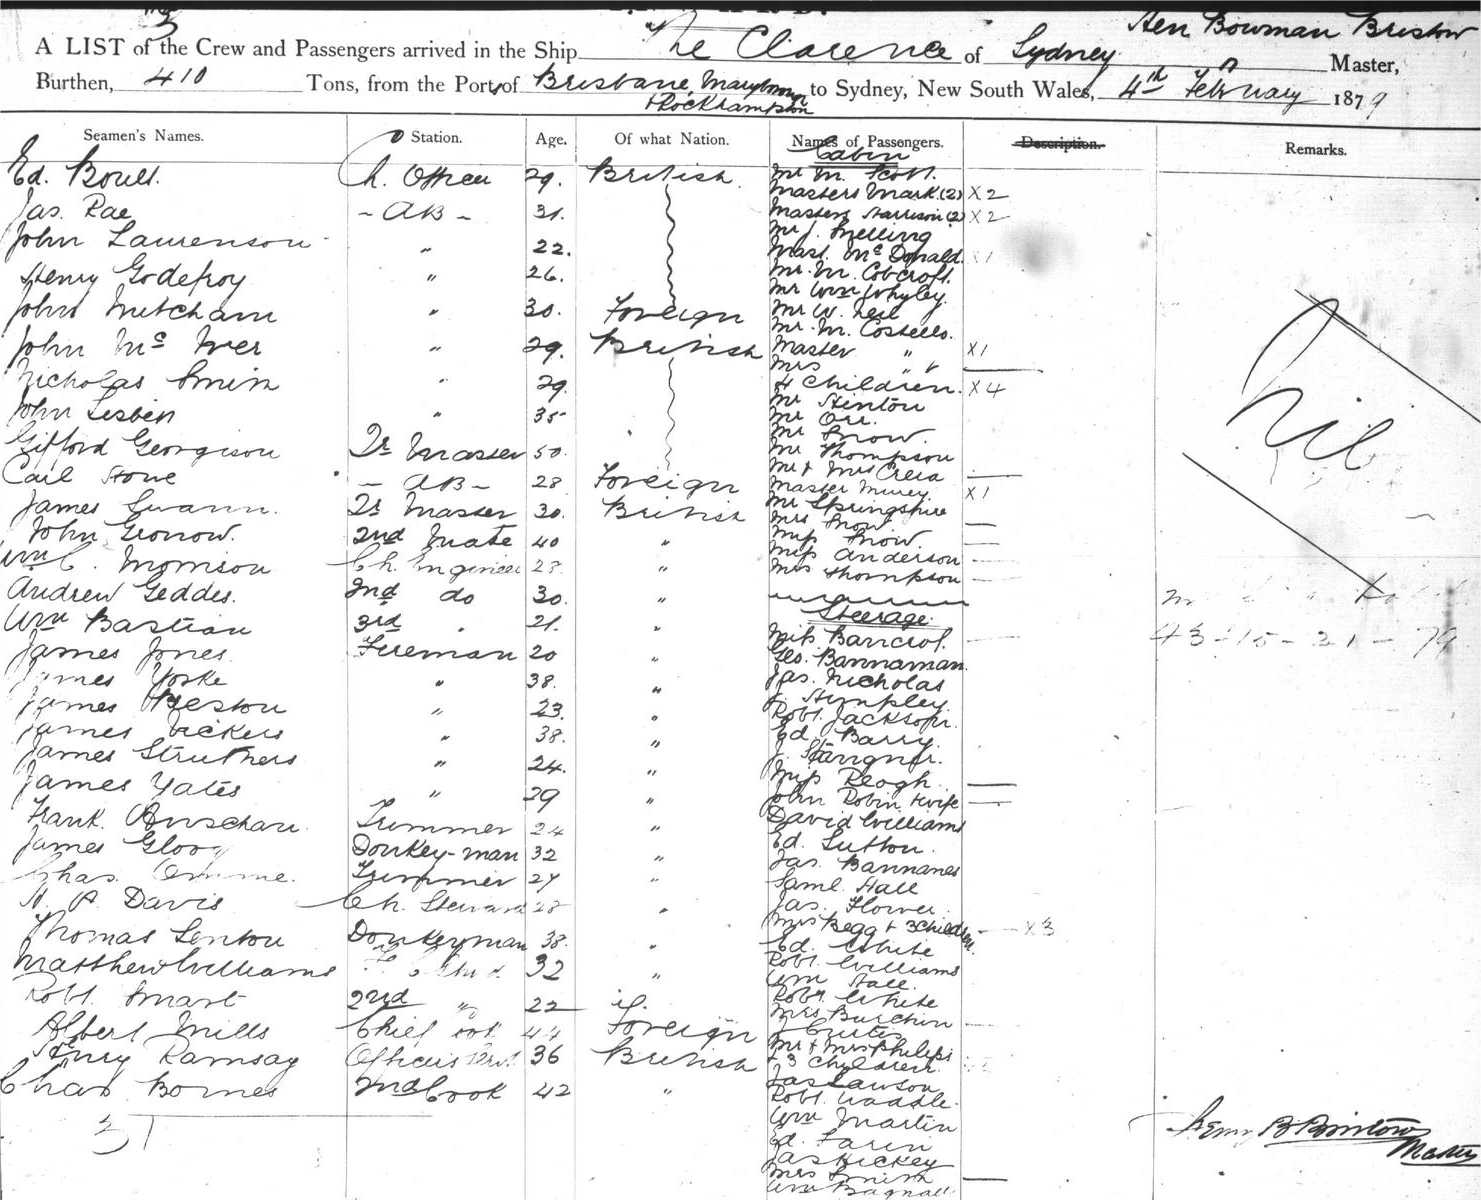 A LIST of the Crew and Passengers arrived in the Ship "The Clarence of Sydney Hen Bowman Bristow Master,
Burthen, 410 Tons, from the Port of Brisbane, Maryborough & Rockhampton to Sydney, New South Wales, 4th February 1879
Seamen's Names. Station. Age. Of what Nation. Names of Passengers. Description. Remarks.
Ed. Boult. Ch. Officer 29. British.
Jas. Rae - AB - 31.
John Laurenson " 22.
Henry Godefroy " 26.
John Mitcham " 30. Foreign
John Mc Iver " 29. British
Nicholas Smith " 29.
John Lesben " 35
Gifford Georgison Qr Master 50.
Carl Stone - AB - 28 Foreign
James Swann. Qr Master 30. British
John Gronow. 2nd Mate 40 "
Wm C. Morrison Ch. Engineer 28 "
Andrew Geddes. 2nd do 30. "
Wm Bastian 3rd " 21. "
James Jones Fireman 20 "
James Yorke " 38. "
James Preston " 23. "
James Vickers " 38. "
James Struthers " 24. "
James Yates " 29 "
Frank Trimmer 24 "
James Donkey-man 32 "
Chas. Trimmer 27 "
A. Davis Ch. Steward 28 "
Thomas Lenton Donkeyman 38. "
Matthew Williams 32 "
Robt. Smart 2nd " 22
Albert Mills Chief Cook 44 Foreign
Henry Ramsay Officers Servt 36 British
Chas Bornes 2nd Cook 42 "
31
Cabin
Mr M. Scott.
Masters Mark (2) X2
Masters Harrison (2) X2
Mr J. Melling
Mast. McDonald X1
Mr. M. Cobcroft.
Mr Wm Whyley.
Mr W. Neil
Mr. M. Costello.
Master " X1
Mrs " "
4 Children. X4
Mr Stenton
Mr Orr.
Mr Snow.
Mr Thompson
Mr & Mrs
Master X1
Mr Springshire
Mrs Snow
Miss Snow
Miss Anderson
Mrs Thompson
Steerage.
Miss Bancrof.
Geo. Bannaman.
Jas. Nicholas
J. Stimpley.
Robt. Jackson.
Ed. Barry.
J.
Miss Keogh.
John Robin & wife
David Williams
Ed. Sutton.
Jas. Bannanes
Saml. Hall
Jas. Flower.
Mrs Begg & 3 Children. X3
Ed. White
Robt. Williams
Wm Hall.
Robt White
Mrs Burchin
J. Curtis
Mr & Mrs Philips
& 3 Children.
Jas Lawson
Robt. Waddle.
Wm Martin
Ed. Farin
Jas Hickey
Mrs Smith
Wm Bagnall
Nil
43-15-21-79
Henry B Bristow
Master